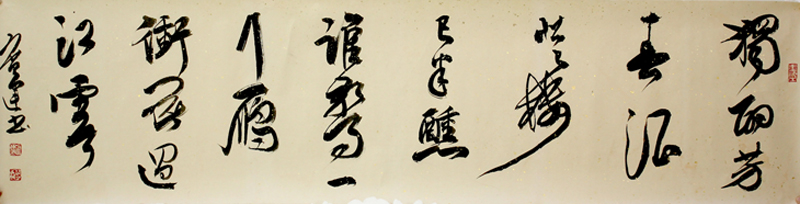 獨酌芳
春酒
登樓
已半醺
誰驚一
行雁
衝斷過
江雲
書